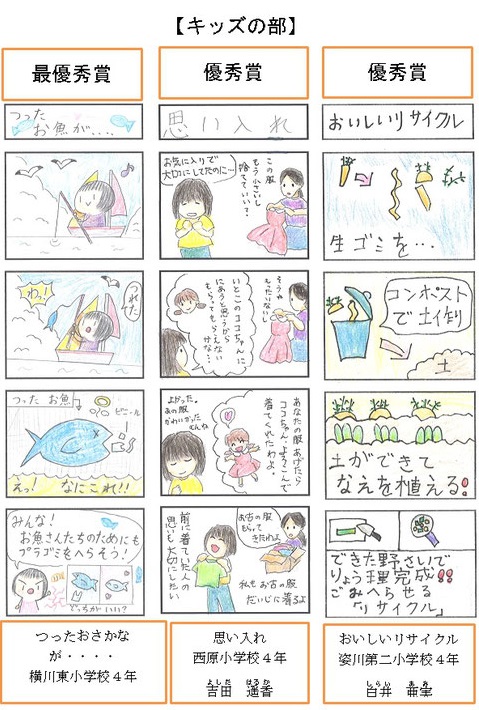 【キッズの部】
最優秀賞
つった
お魚が....
つれた
わっ!
つった お魚
ビニール
えっ! なにこれ!!
みんな!
お魚さんたちのためにも
プラゴミをへらそう!
どっちがいい?
つったおさかな
が・・・・
横川東小学校4年
優秀賞
思い入れ
この服
もう小さいし
捨てていい?
お気に入りで
大切にしてたのに…
いとこのココちゃんに
にあうと思うから
もらってもらえない
かな…
あなたの服あげたら
ココちゃん、よろこんで
着てくれたわよ。
よかった。
あの服
かわいかった
もんね
お古の服
もらって
きたわよ
前に着ていた人の
思いも大切にしたい
私もお古の服
だいじに着るよ
思い入れ
西原小学校4年
よしだ はるか
吉田 遥香
優秀賞
おいしいリサイクル
生ゴミを…
コンポスト
で土作り
土
土ができて
なえを植える!
できた野さいで
りょう理完成!!
ごみへらせる
「リサイクル」
おいしいリサイクル
姿川第二小学校4年
しらい あみ
白井 亜実